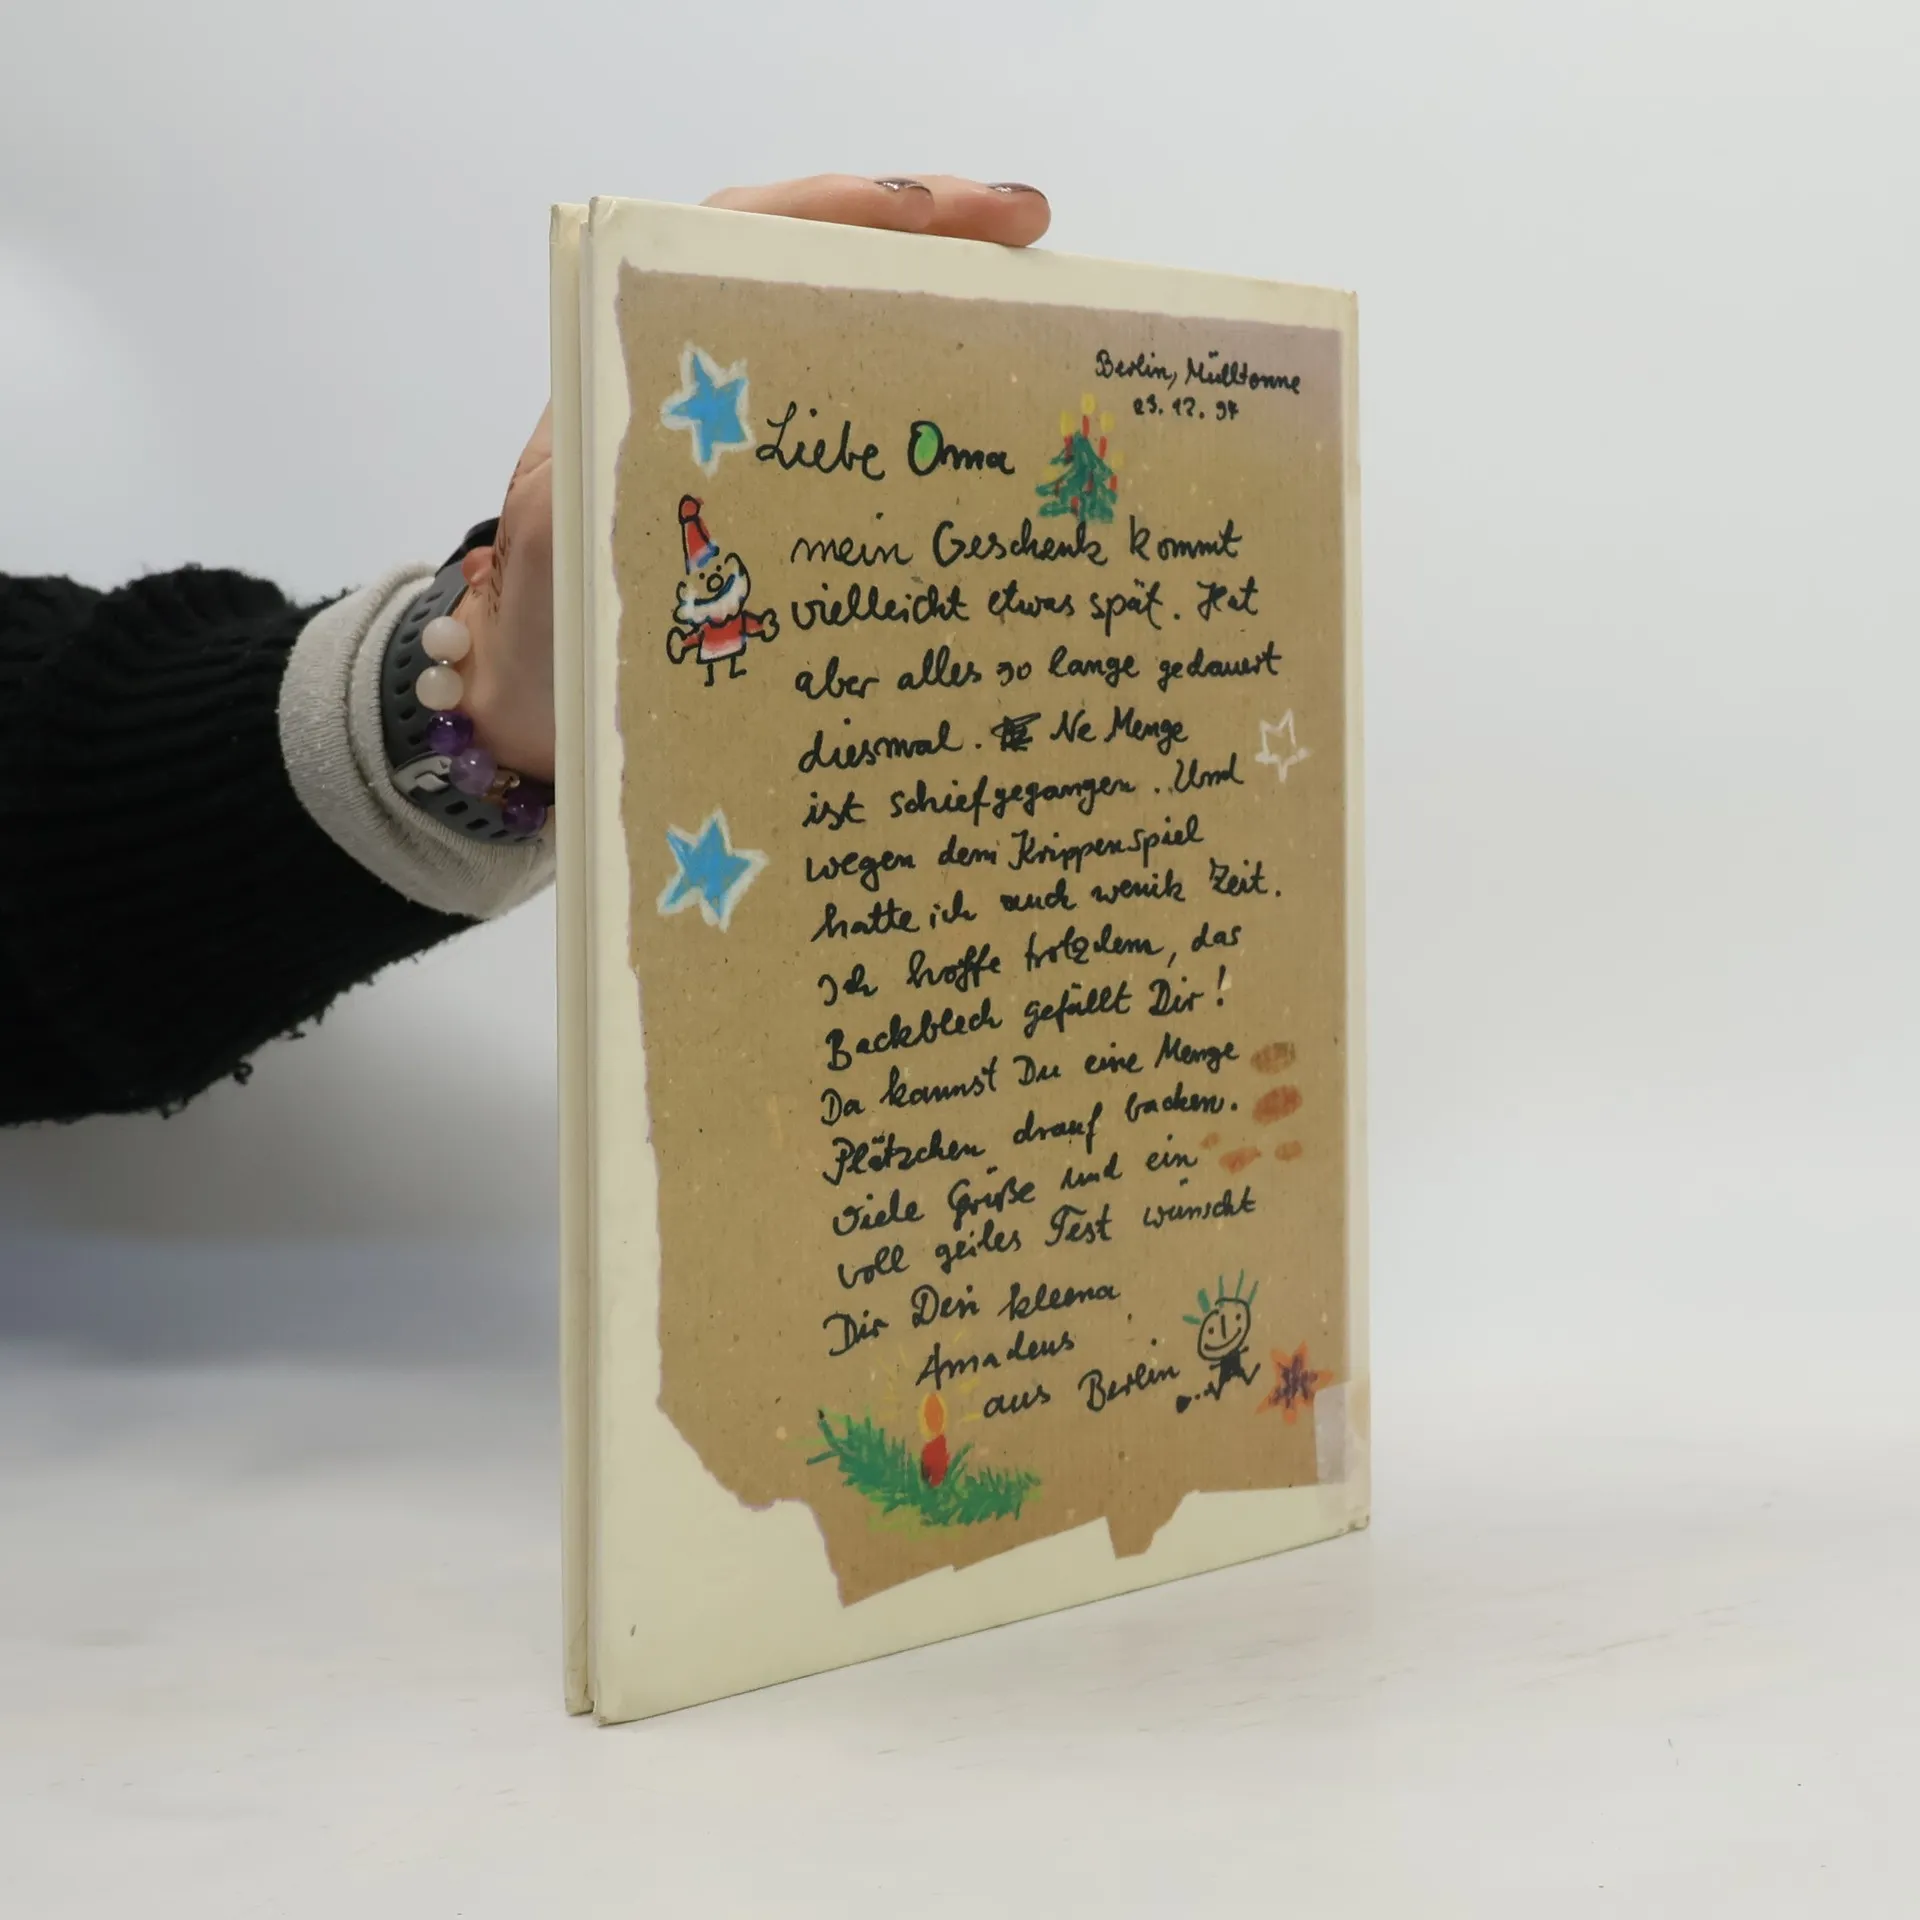 Berlin, Mülltonne
23.12.97
Liebe Oma
mein Geschenk kommt
vielleicht etwas spät. Hat
aber alles so lange gedauert
diesmal. Ne Menge
ist schiefgegangen. Und
wegen dem Krippenspiel
hatte ich auch wenik Zeit.
Ich hoffe trotzdem, das
Backblech gefällt Dir!
Da kannst Du eine Menge
Plätzchen drauf backen.
Viele Grüße und ein
voll geiles Fest wünscht
Dir Dein kleena
Amadeus
aus Berlin